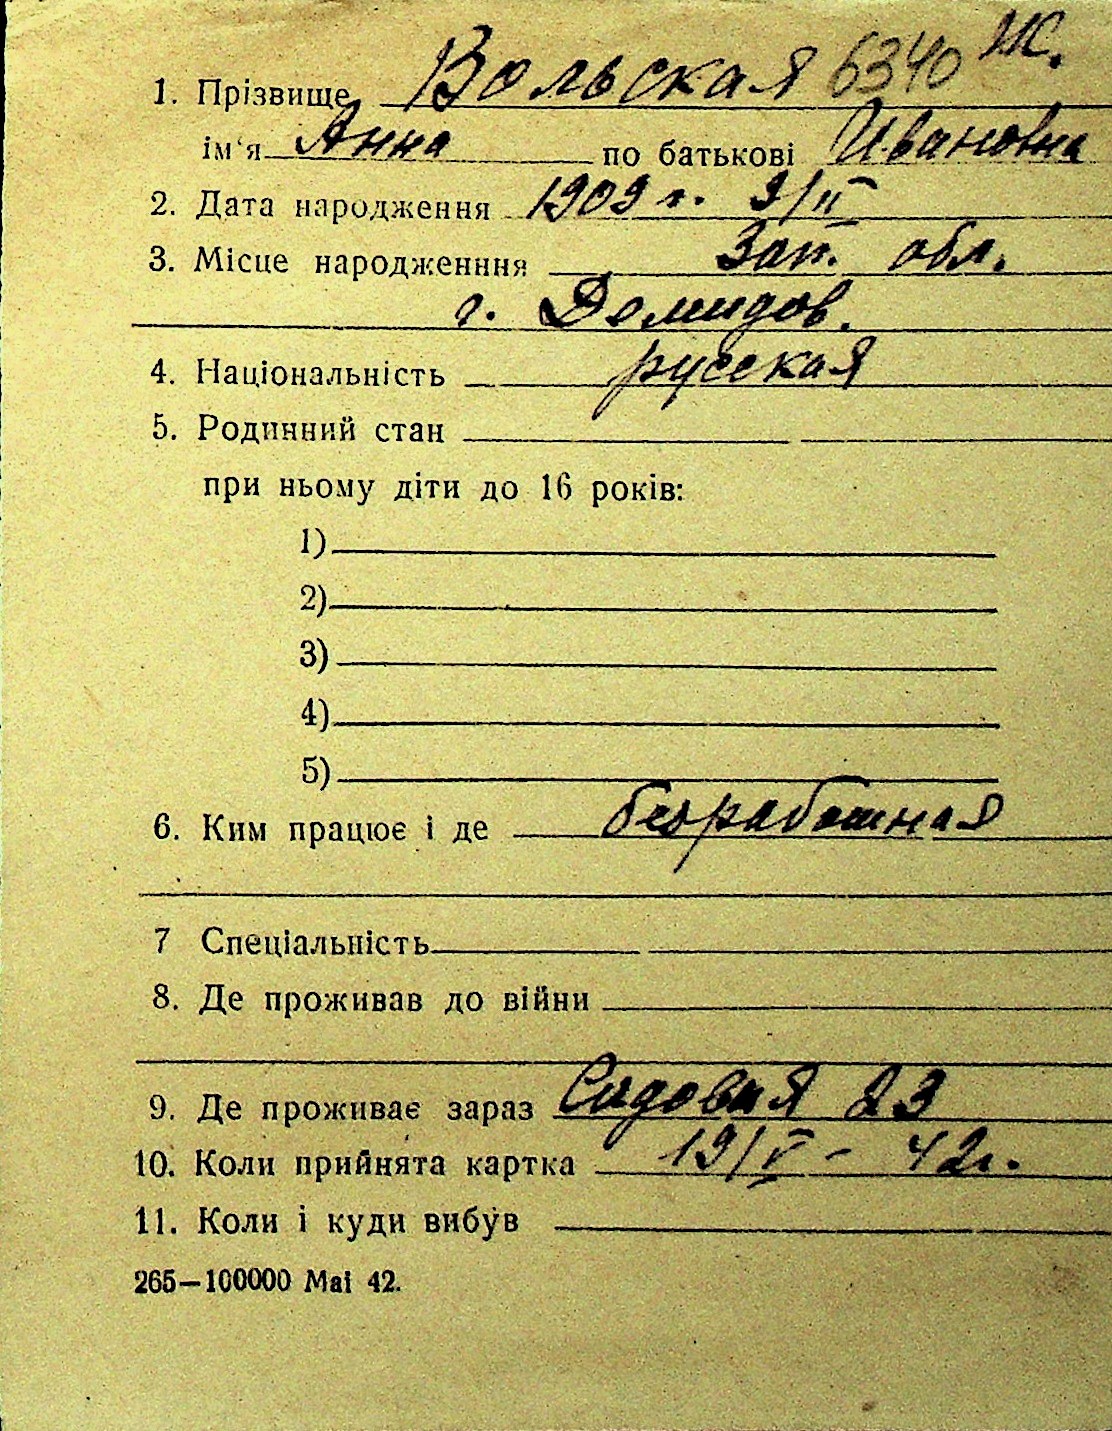 1. Прізвище Вольская 6340 Ж.
ім'я Анна по батькові Ивановна
2. Дата народження 1909 г. 9/II
3. Місце народженння Зап. обл.
г. Демидов.
4. Національність русская
5. Родинний стан
при ньому діти до 16 років:
1)
2)
3)
4)
5)
6. Ким працює і де безработная
7 Спеціальність
8. Де проживав до війни
9. Де проживає зараз Садовая 23
10. Коли прийнята картка 19/V - 42г.
11. Коли і куди вибув
265—100000 Маі 42.